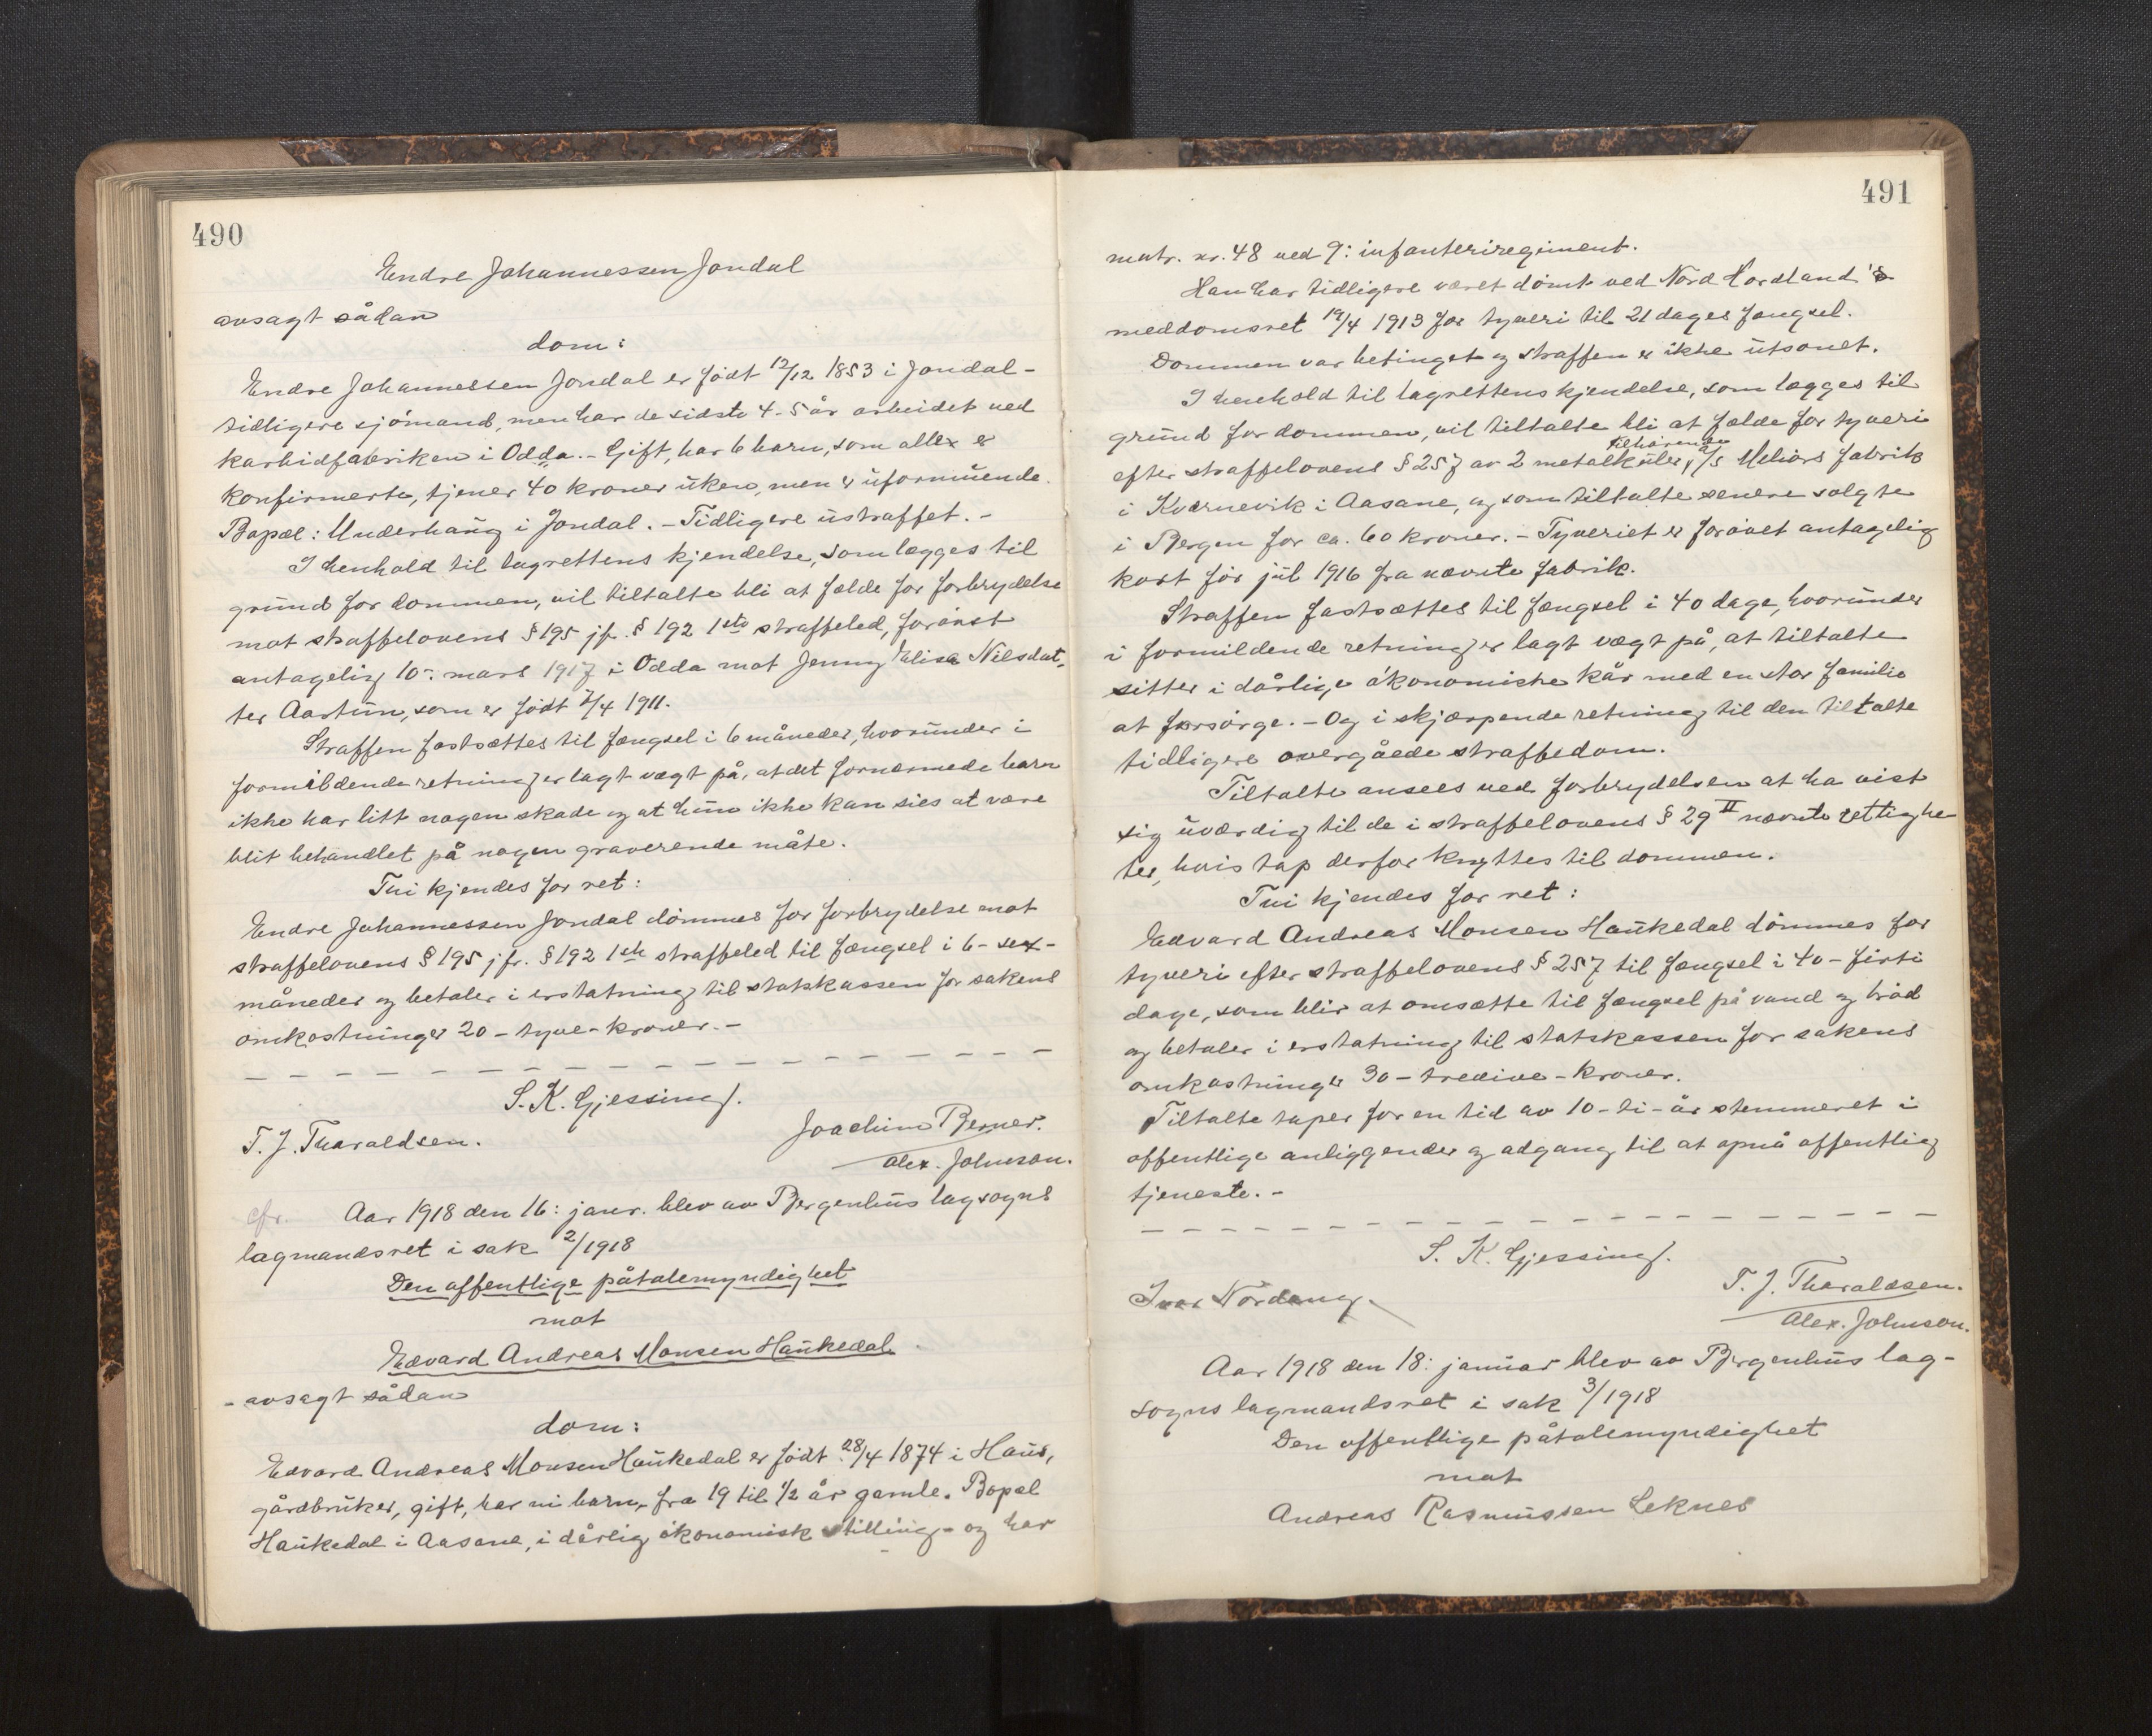 490
Endre Johannessen Jondal
avsagt sådan
dom:
Endre Johannessen Jondal er født 12/12 1853 i Jondal -
tidligere sjömand, men har de sidste 4-5 år arbeidet ved
karbidfabriken i Odda. - Gift, har 6 barn, som alle er
konfirmerte, tjener 40 kroner uken, men er uformuende.
Bopæl: Underhaug i Jondal. - Tidligere ustraffet. -
I henhold til lagrettens kjendelse, som lægges til
grund for dommen, vil tiltalte bli at fælde for forbrydelse
mot straffelovens § 195 jfr. § 192 1ste straffeled, forövet
antagelig 10: mars 1917 i Odda mot Jenny Elise Nilsdat-
ter Aartun, som er født /4 1911.
Straffen fastsættes til fængsel i 6 måneder, hvorunder i
formildende retning er lagt vægt på, at det fornærmede barn
ikke har litt nogen skade og at hun ikke kan sies at være
blit behandlet på nogen graverende måte.
Thi kjendes for ret:
Endre Johannessen Jondal dömmes for forbrydelse mot
straffelovens § 195 jfr. § 192 1ste straffeled til fængsel i 6 - sex -
måneder og betaler i erstatning til statskassen for sakens
omkostninger 20 - tyve - kroner. -
S. K. Gjessing.
T. J. Tharaldsen.
Joachim Berner.
Alex. Johnson.
cfr. Aar 1918 den 16: janr. blev av Bergenhus lagsogns
lagmandsret i sak 2/1918
Den offentlige påtalemyndighet
mot
Edvard Andreas Monsen Haukedal
- avsagt sådan
dom:
Edvard Andreas Monsen Haukedal er født 28/4 1874 i Haus,
gårdbruker, gift, har ni barn, fra 19 til 1/2 år gamle. Bopæl
Haukedal i Aasane, i dårlig ökonomisk stilling - og har
491
matr. nr. 48 ved 9: infanteriregiment.
Han har tidligere været dömt ved Nord Hordland's
meddomsret 19/4 1913 for tyveri til 21 dages fængsel.
Dommen var betinget og straffen er ikke utsonet.
I henhold til lagrettens kjendelse, som lægges til
grund for dommen, vil tiltalte bli at fælde for tyveri
tilhörende
efter straffelovens § 257 av 2 metalkuler, a/s Meliors fabrik
i Kværnevik i Aasane, og som tiltalte senere solgte
i Bergen for ca. 60 kroner. - Tyveriet er forövet antagelig
kort för jul 1916 fra nævnte fabrik.
Straffen fastsættes til fængsel i 40 dage, hvorunder
i formildende retning er lagt vægt på, at tiltalte
sitter i dårlige ökonomiske kår med en stor familie
at forsörge. - Og i skjærpende retning til den tiltalte
tidligere overgåede straffedom.
Tiltalte ansees ved forbrydelsen at ha vist
sig uværdig til de i straffelovens § 29 II nævnte rettighe
ter, hvis tap derfor knyttes til dommen.
Thi kjendes for ret:
Edvard Andreas Monsen Haukedal dömmes for
tyveri efter straffelovens § 257 til fængsel i 40 - firti
dage, som blir at omsætte til fængsel på vand og bröd
og betaler i erstatning til statskassen for sakens
omkostninger 30 - tredive - kroner.
Tiltalte taper for en tid av 10 - ti - år stemmeret i
offentlige anliggender og adgang til at opnå offentlig
tjeneste. -
S. K. Gjessing.
Ivar Nordang.
T. J. Tharaldsen.
Alex. Johnson.
Aar 1918 den 18: januar blev av Bergenhus lag-
sogns lagmandsret i sak 3/1918
Den offentlige påtalemyndighet
mot
Andreas Rasmussen Leknes